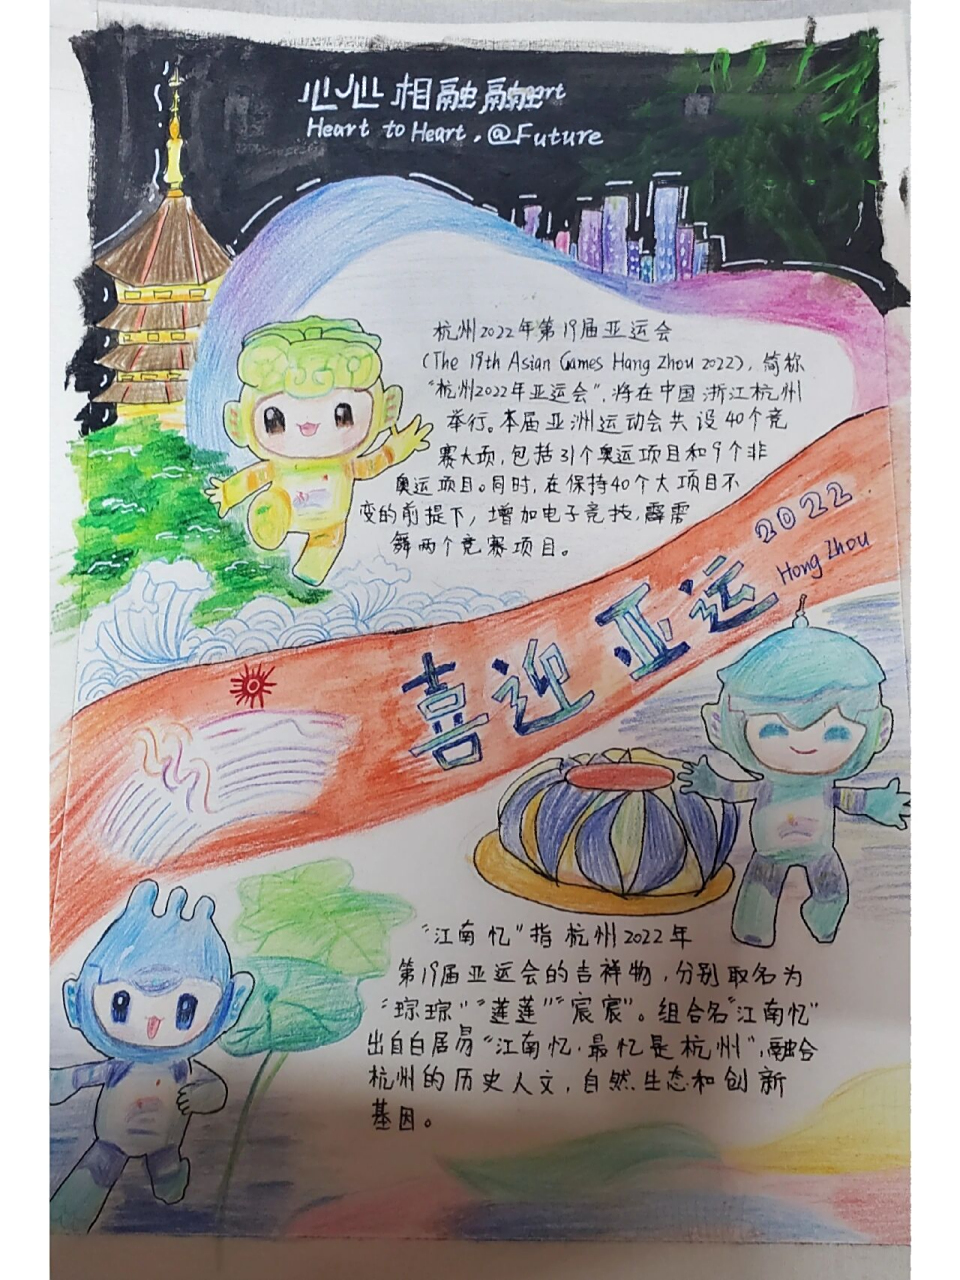 心心相融
Heart to Heart, @Future
杭州2022年第19届亚运会
(The 19th Asian Games Hang Zhou 2022), 简称
"杭州2022年亚运会", 将在中国浙江杭州
举行。本届亚洲运动会共设40个竞
赛大项, 包括31个奥运项目和9个非
奥运项目。同时, 在保持40个大项目不
变的前提下, 增加电子竞技, 霹雳
舞两个竞赛项目。
喜迎亚运
2022
Hong Zhou
"江南忆"指杭州2022年
第19届亚运会的吉祥物, 分别取名为
"琮琮""莲莲""宸宸"。组合名"江南忆"
出自白居易"江南忆, 最忆是杭州", 融合
杭州的历史人文, 自然生态和创新
基因。